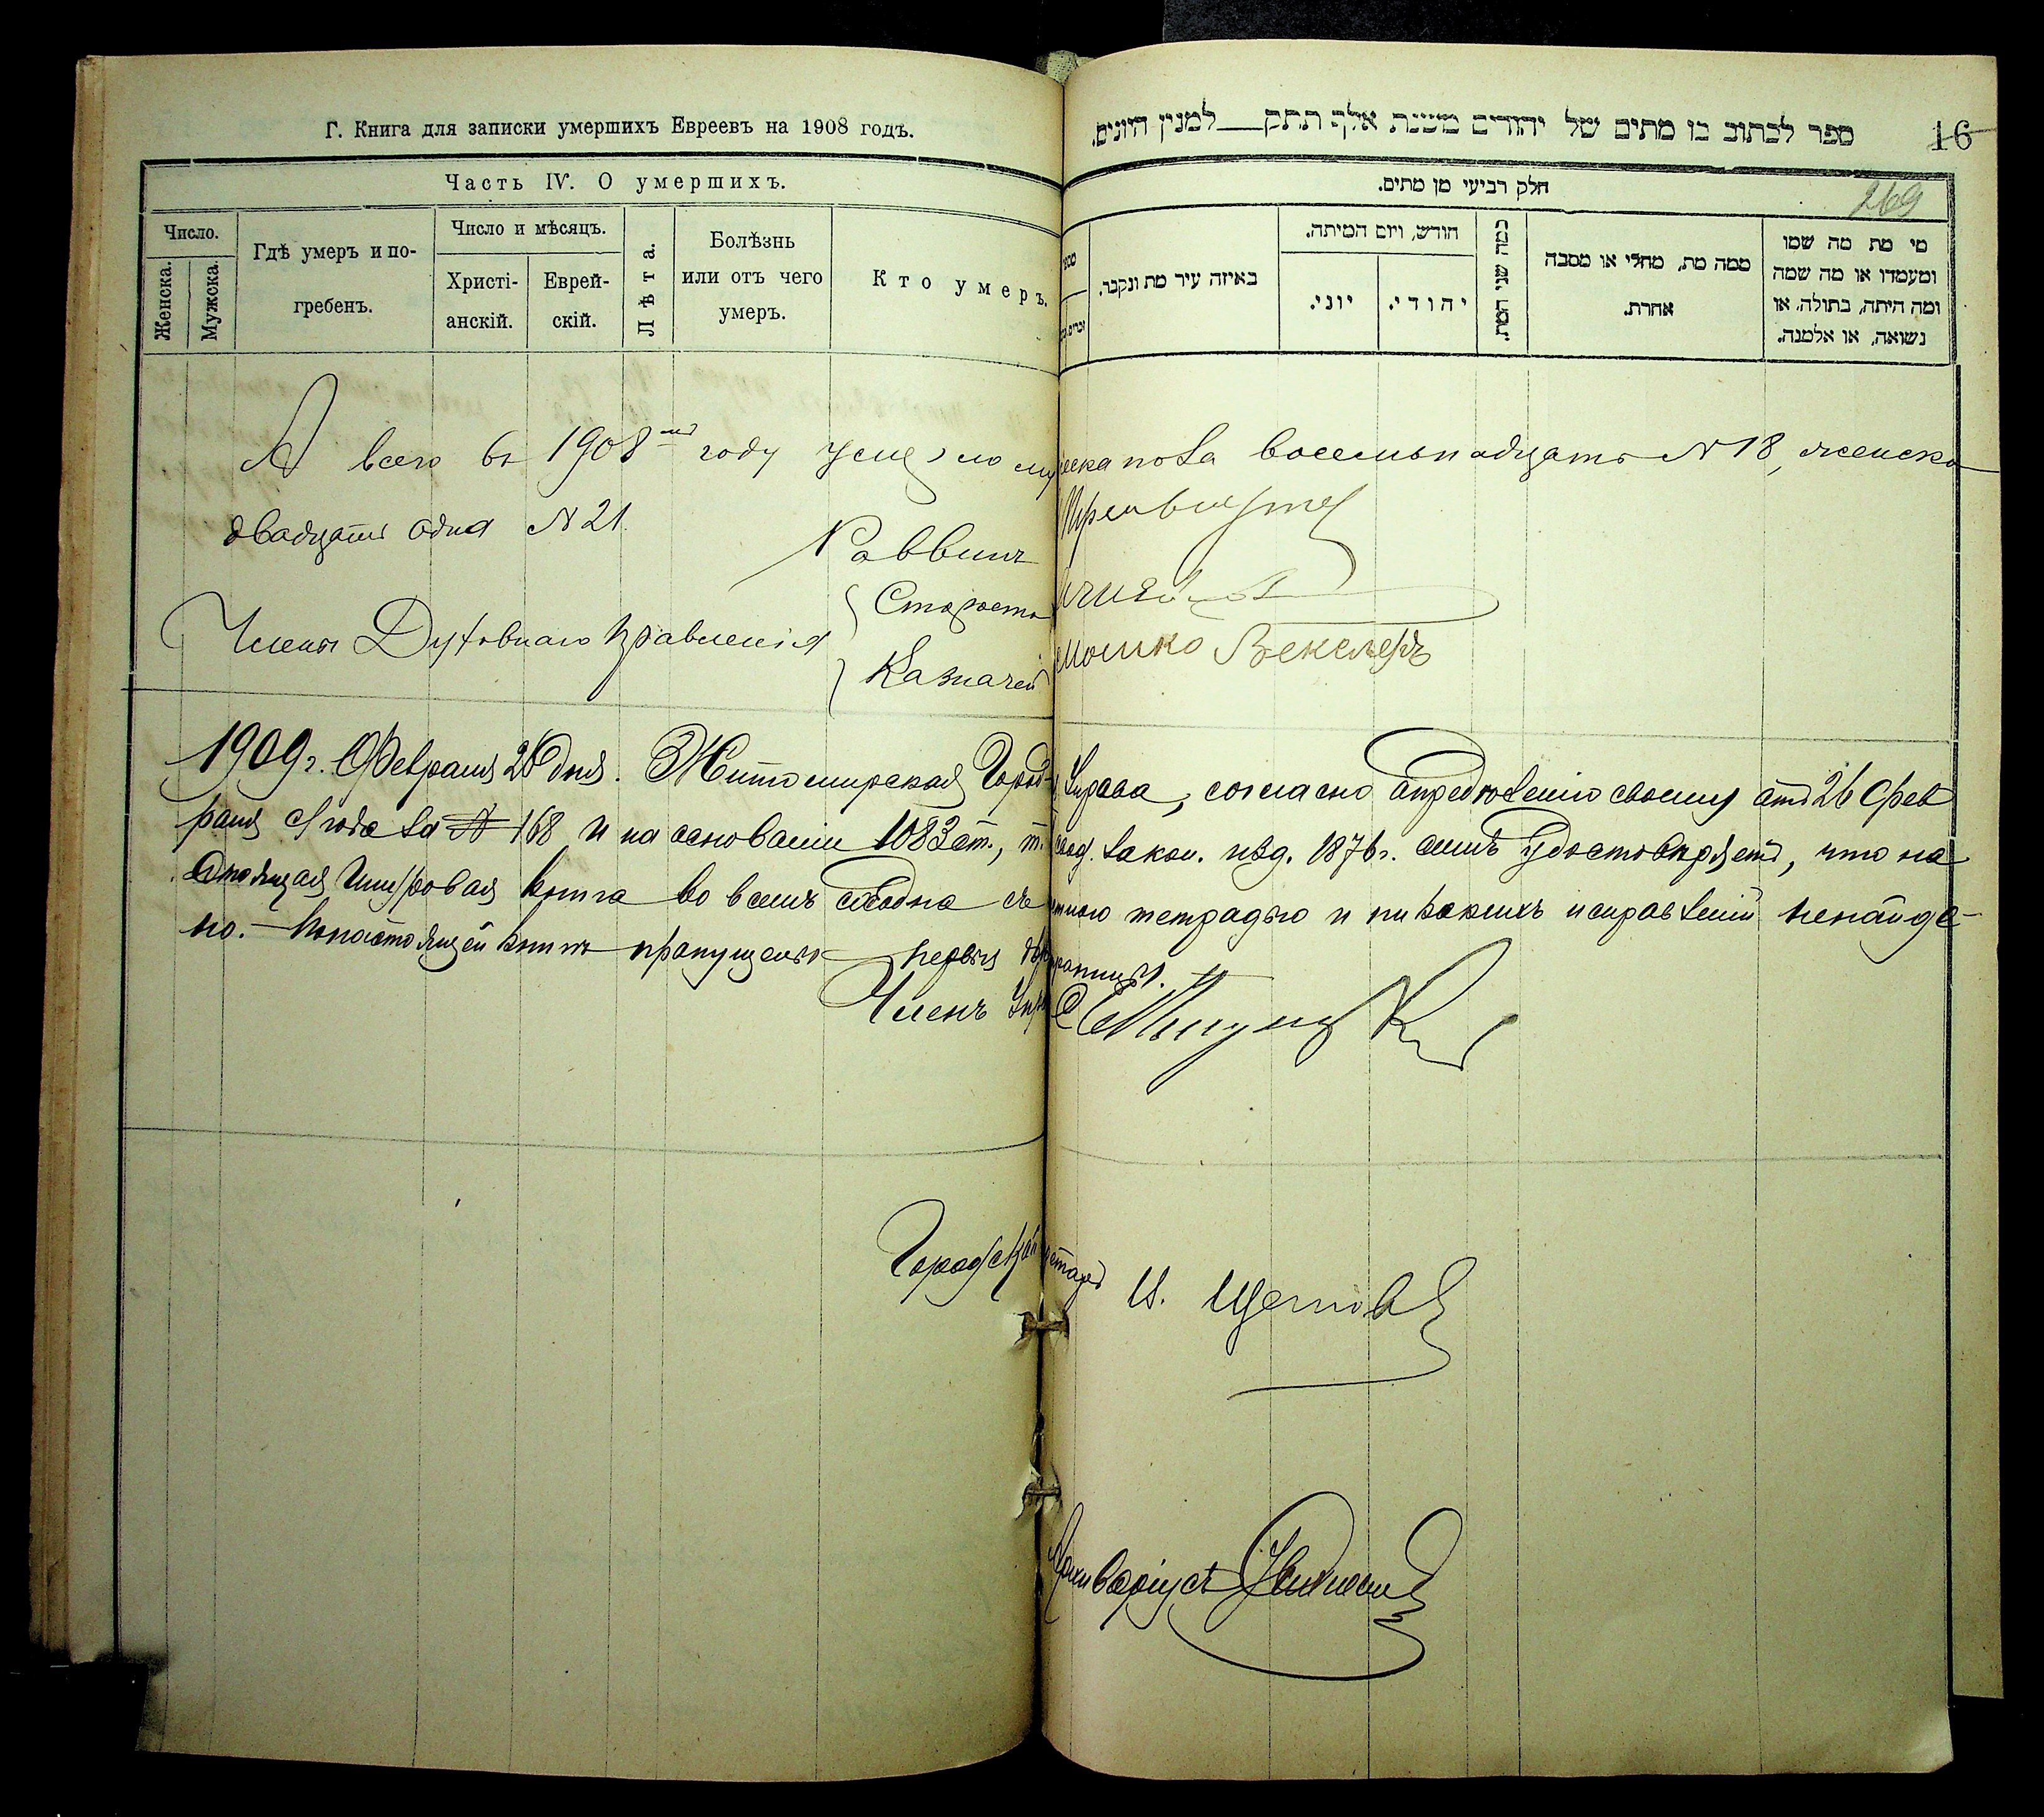 Г. Книга для записки умершихъ Евреевъ на 1908 годъ.
Часть IV. О умершихъ.
Число.
Женска.
Мужска.
Гдѣ умеръ и по-
гребенъ.
Число и мѣсяцъ.
Христі-
анскій.
Еврей-
скій.
Лѣта.
Болѣзнь
или отъ чего
умеръ.
Кто умеръ.
ספר לכתוב בו מתים של יהודים משנת אלף תתק למנין היונים.
16
269
חלק רביעי מן מתים.
באיזה עיר מת ונקבר.
חודש, ויום המיתה.
יוני.
יהודי.
כמה שני המת.
ממה מת, מחלי או מסבה
אחרת.
מי מת מה שמו
ומעמדו או מה שמה
ומה היתה, בתולה, או
נשואה, או אלמנה.
А всего въ 1908 году умерло мужеска пола восемьнадцать N 18, женска
двадцать одна N 21.
Раввинъ
Члены Духовнаго Правленія
Староста
Казначей Мошко Векслеръ
1909 г. Февраля 26 дня. Житомирская Город. Управа, согласно опредѣленію своему отъ 26 Фев
раля с/года за № 168 и на основаніи 1083 ст., т. свод. закон. изд. 1876 г. симъ удостовѣряетъ, что на
стоящая шнуровая книга во всемъ сходна съ тетрадью и никакихъ исправленій ненайде-
но. - Въ настоящей книгѣ пропущены первыя страницы.
Членъ Управы
Городской Секретарь И. Щегловъ
Архиваріусъ